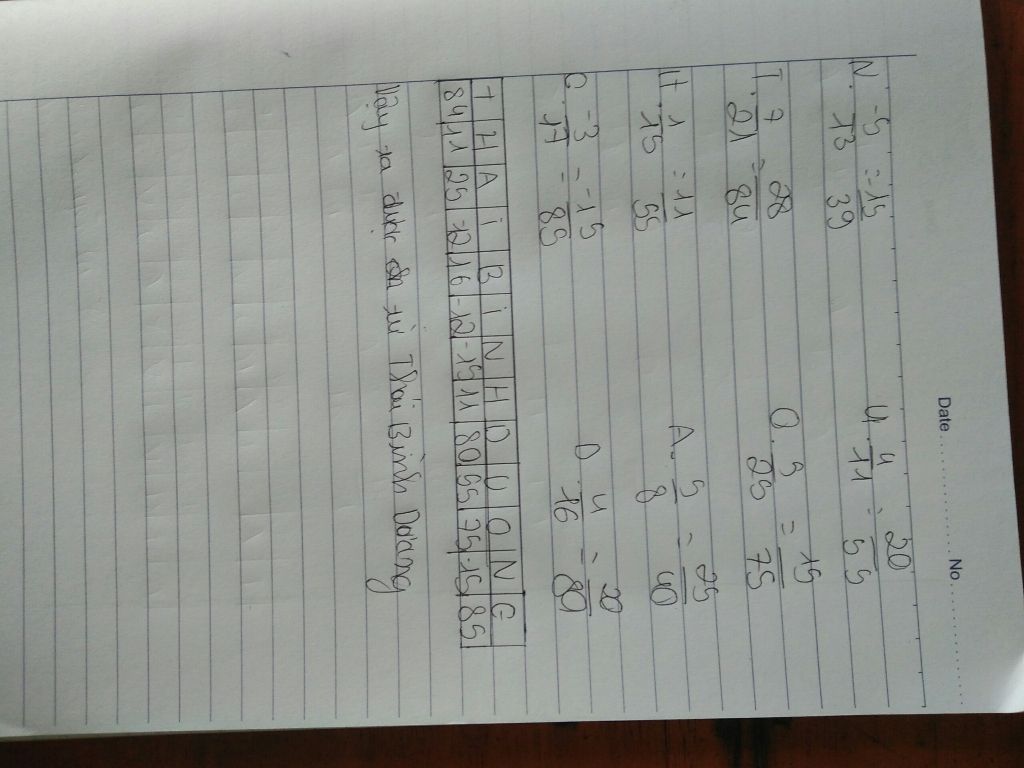 Date .......... No. ..........
N. -5/13 = -15/39 U. 4/11 = 20/55
T. 7/21 = 28/84 O. 5/25 = 15/75
H. 1/15 = 11/55 A. 5/8 = 25/40
G. -3/17 = -15/85 D 4/16 = 20/80
T H A i B i N H D U O N G
84 11 25 -12 16 -12 -15 11 80 55 75 -15 85
Vậy ta được từ Thái Bình Dương